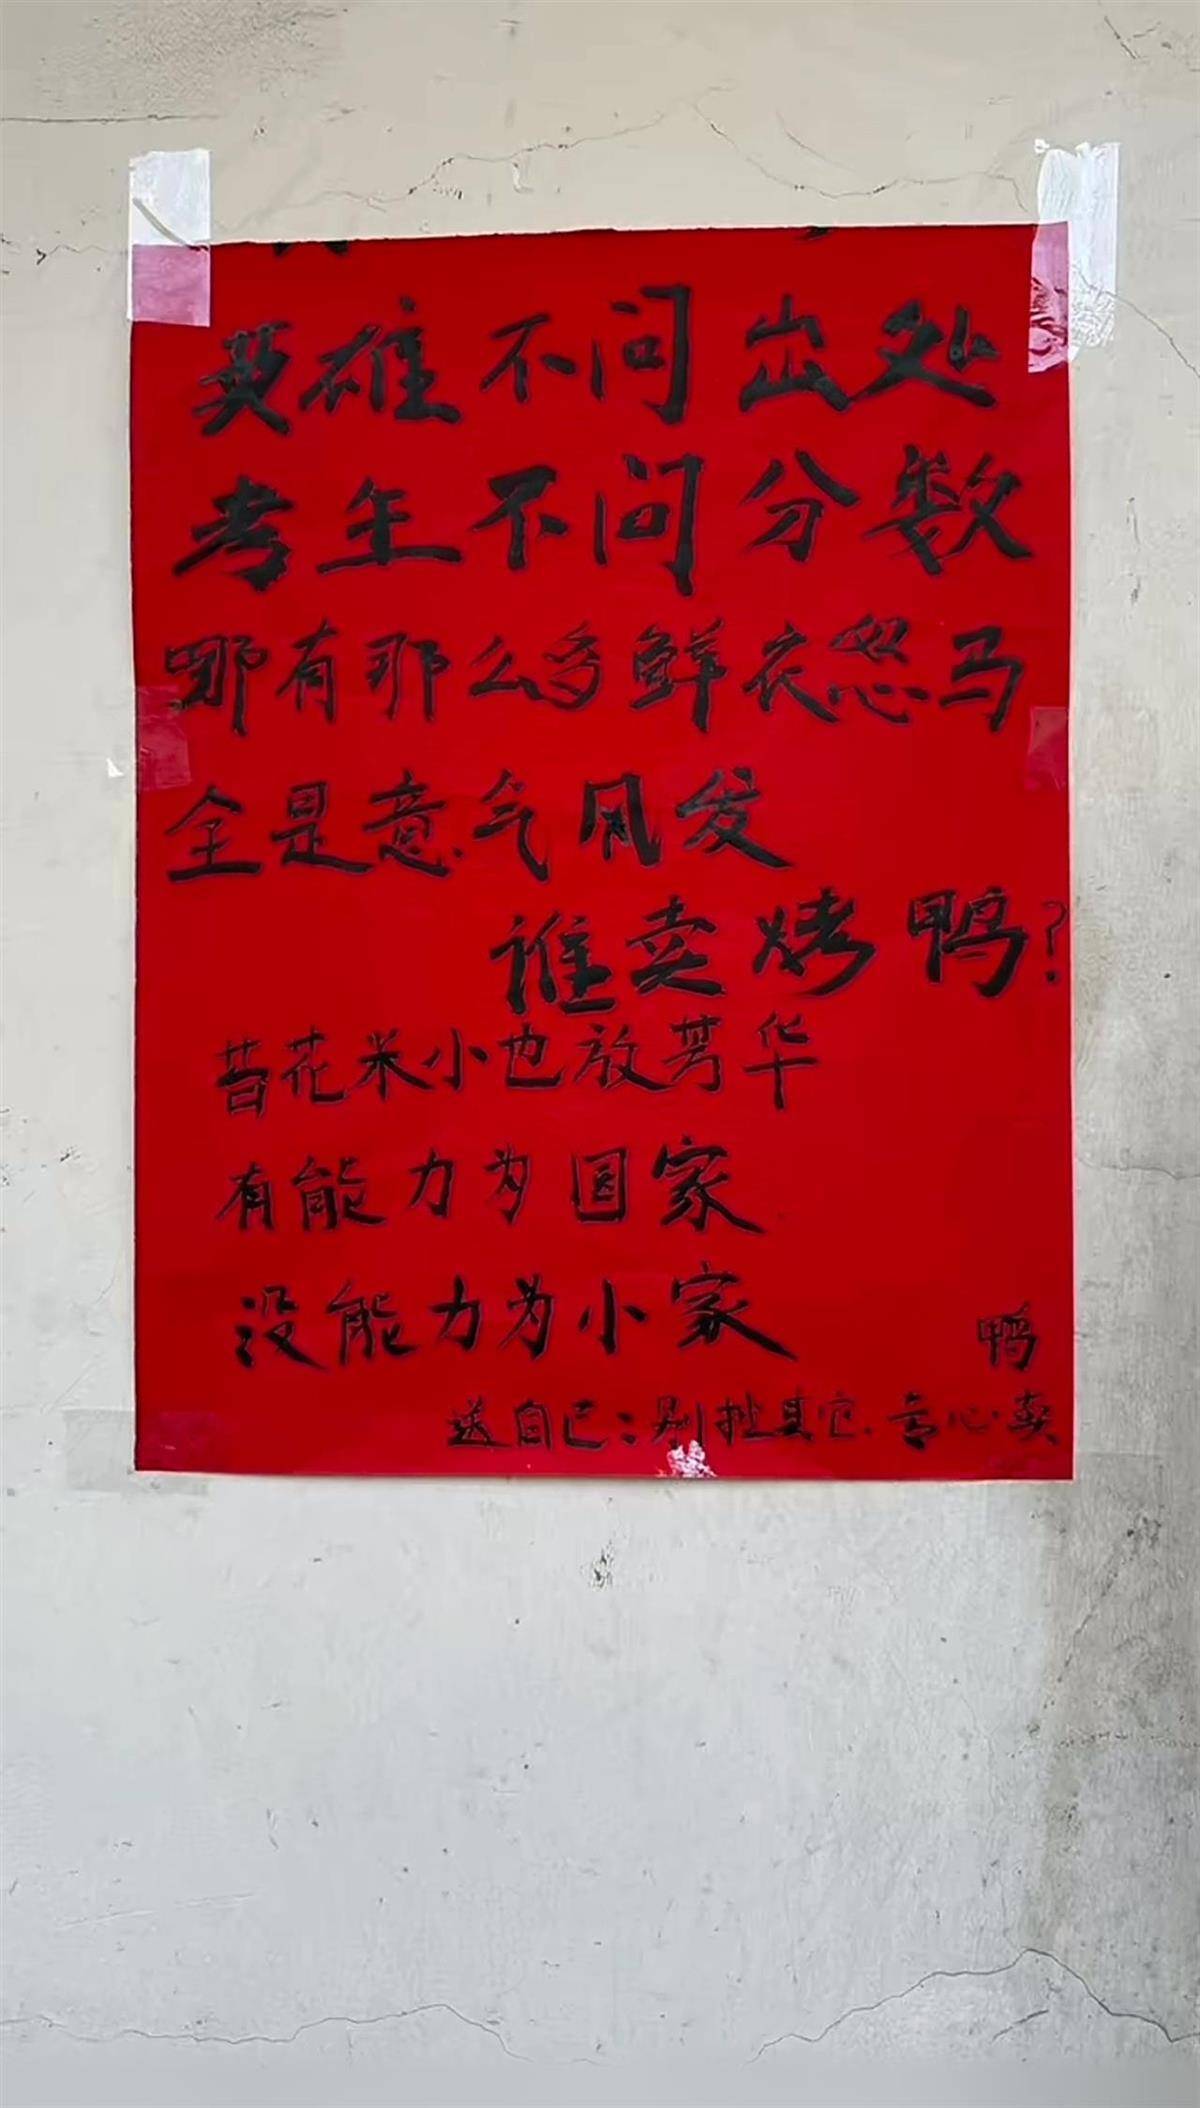 英雄不问出处
考生不问分数
哪有那么多鲜衣怒马
全是意气风发
谁卖烤鸭?
苔花米小也放芳华
有能力为国家
没能力为小家
鸭
送自己:别扯其它.专心卖